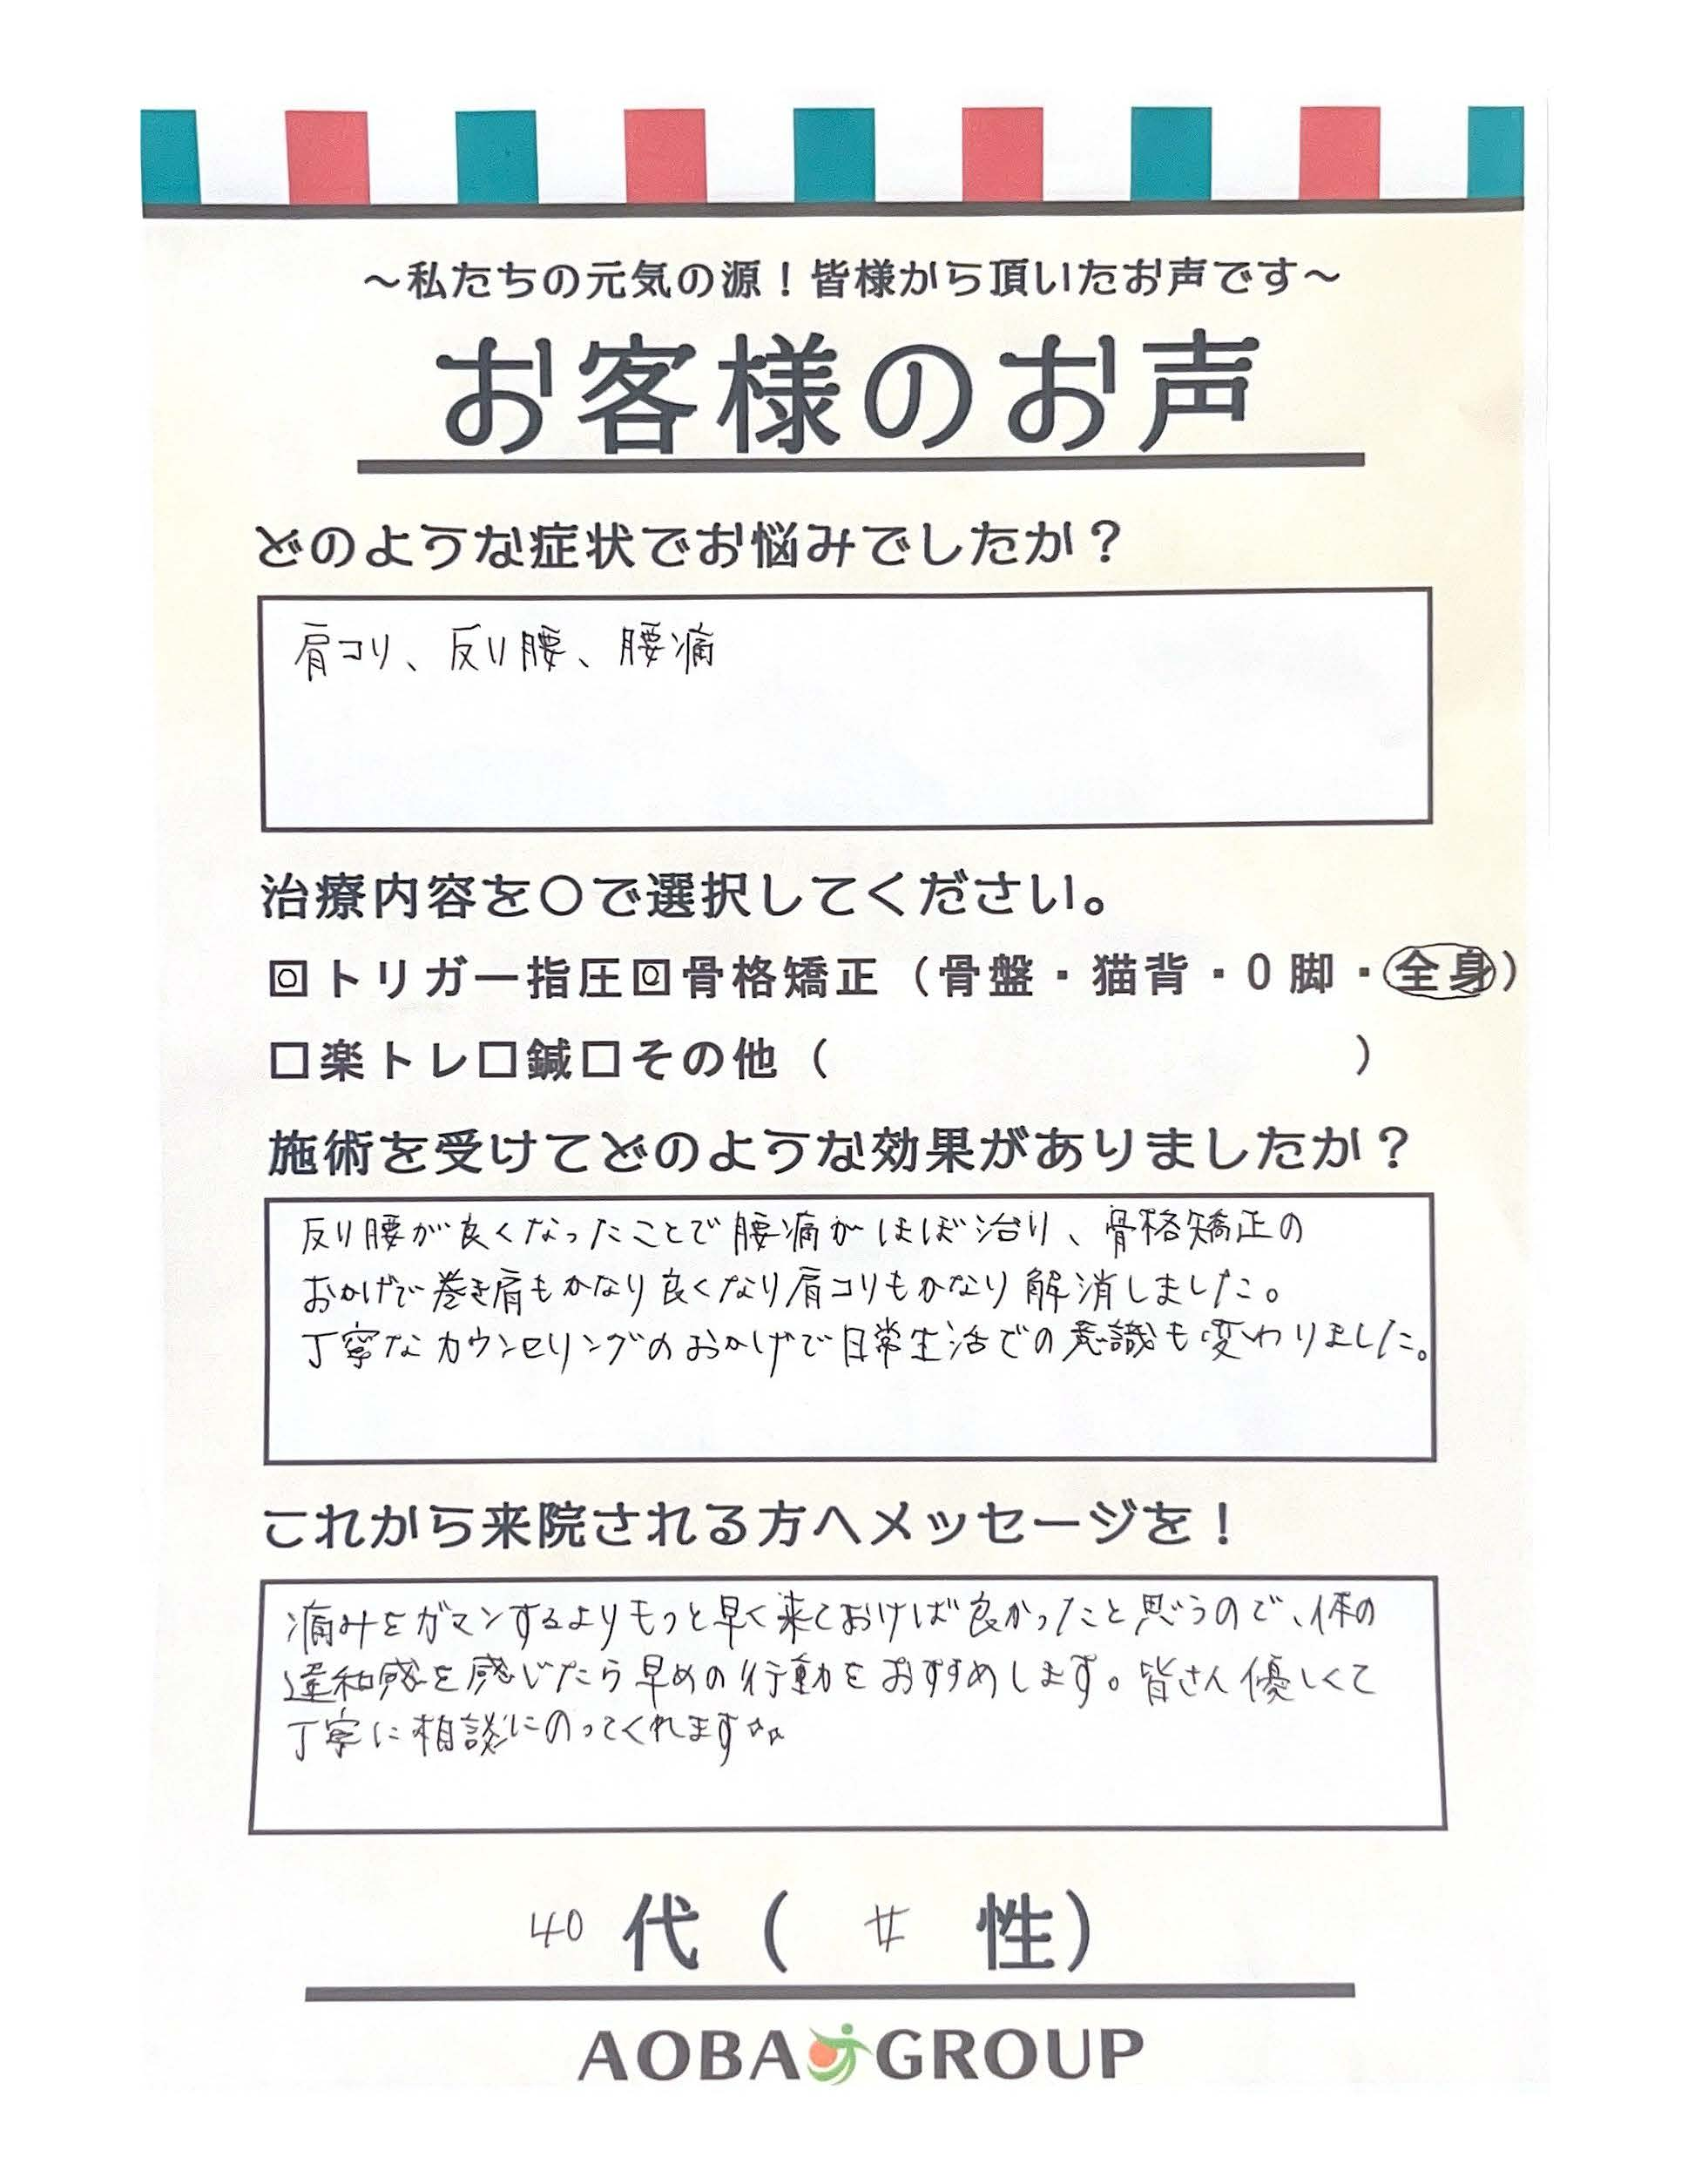 ～私たちの元気の源！皆様から頂いたお声です～
お客様のお声
どのような症状でお悩みでしたか？
肩コリ、反り腰、腰痛
治療内容を〇で選択してください。
☐トリガー指圧☐骨格矯正（骨盤・猫背・O脚・全身）
☐楽トレ☐鍼☐その他（　　　　　　　　　　）
施術を受けてどのような効果がありましたか？
反り腰が良くなったことで腰痛がほぼ治り、骨格矯正の
おかげで巻き肩もかなり良くなり肩コリもかなり解消しました。
丁寧なカウンセリングのおかげで日常生活での意識も変わりました。
これから来院される方へメッセージを！
痛みをガマンするよりもっと早く来ておけば良かったと思うので、体の
違和感を感じたら早めの行動をおすすめします。皆さん優しくて
丁寧に相談にのってくれます☆☆
40代（女性）
AOBA GROUP